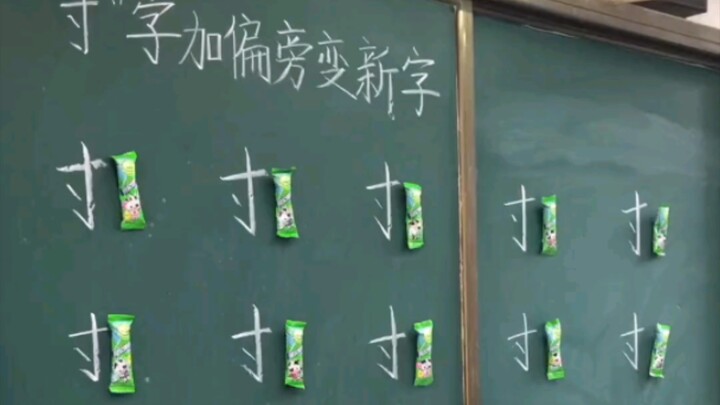 寸"字加偏旁变新字
寸 寸 寸 寸 寸
寸 寸 寸 寸 寸